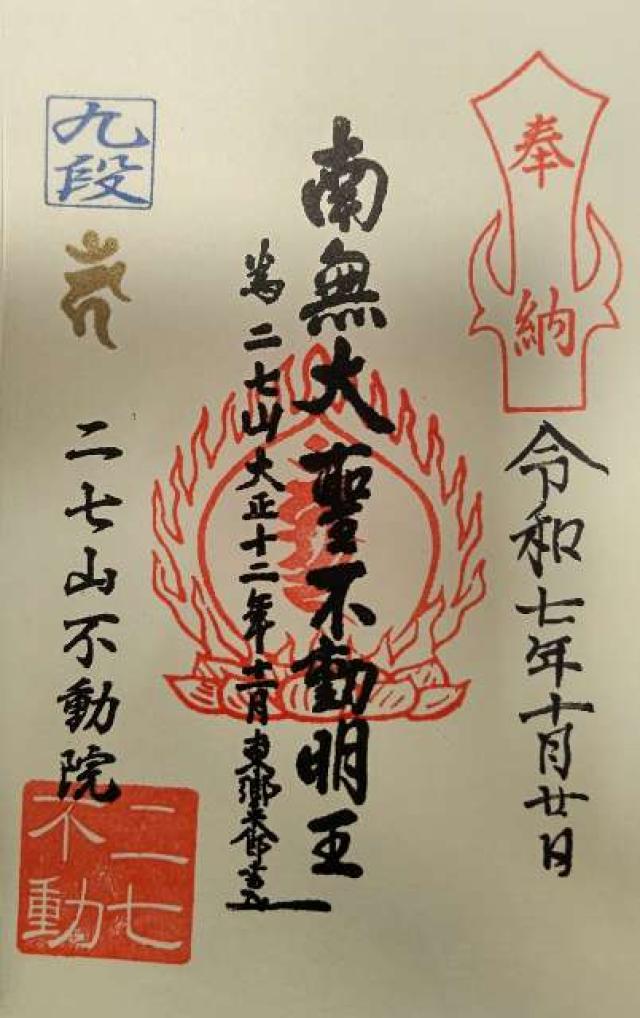 奉納
令和七年十月廿日
南無大聖不動明王
為二七山大正十二年十一月東郷平八郎書
九段
二七山不動院
二七
不動